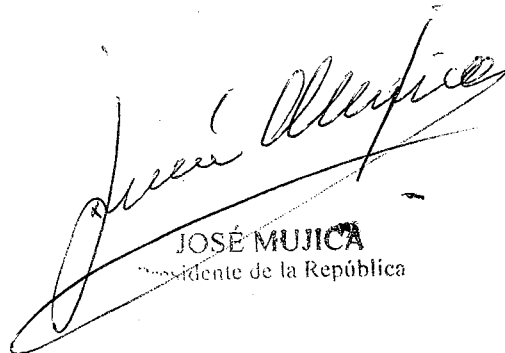 José Mujica
JOSÉ MUJICA
Presidente de la República